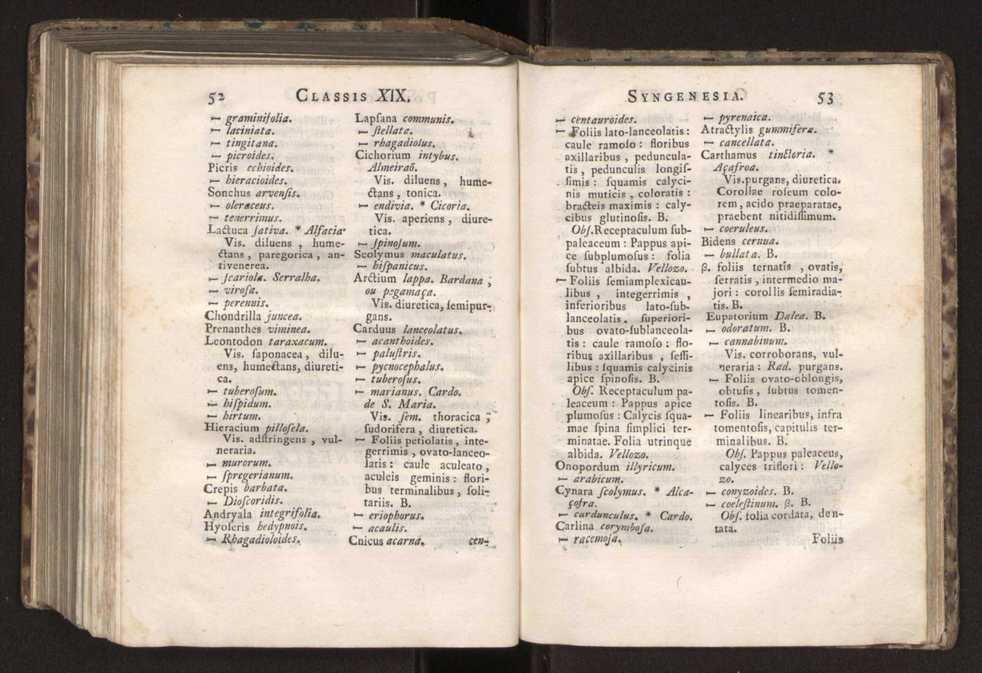 52 CLASSIS XIX.
— graminifolia.
— laciniata.
— tingitana.
— picroides.
Picris echioides.
— hieracioides.
Sonchus arvenſis.
— oleraceus.
— tenerrimus.
Lactuca ſativa. * Alfacia
Vis. diluens, hume-
ctans, paregorica, an-
tivenerea.
— ſcariola. Serralha.
— viroſa.
— perennis.
Chondrilla juncea.
Prenanthes viminea.
Leontodon taraxacum.
Vis. ſaponacea, dilu-
ens, humectans, diureti-
ca.
— tuberoſum.
— hiſpidum.
— hirtum.
Hieracium pilloſela.
Vis. adſtringens, vul-
neraria.
— murorum.
— ſpregerianum.
Crepis barbata.
— Dioſcoridis.
Andryala integrifolia.
Hyoſeris hedypnois.
— Rhagadioloides.
Lapſana communis.
— ſtellata.
— rhagadiolus.
Cichorium intybus.
Almeiraõ.
Vis. diluens, hume-
ctans, tonica.
— endivia. * Cicoria.
Vis. aperiens, diure-
tica.
— ſpinoſum.
Scolymus maculatus.
— hiſpanicus.
Arctium lappa. Bardana;
ou pegamaça.
Vis. diuretica, ſemipur-
gans.
Carduus lanceolatus.
— acanthoides.
— paluſtris.
— pycnocephalus.
— tuberoſus.
— marianus. Cardo.
de S. Maria.
Vis. ſem. thoracica,
ſudorifera, diuretica.
— Foliis petiolatis, inte-
gerrimis, ovato-lanceo-
latis: caule aculeato,
aculeis geminis: flori-
bus terminalibus, ſoli-
tariis. B.
— eriophorus.
— acaulis.
Cnicus acarna. cen-
SYNGENESIA. 53
— centauroides.
— Foliis lato-lanceolatis:
caule ramoſo: floribus
axillaribus, peduncula-
tis, pedunculis longiſ-
ſimis: ſquamis calyci-
nis muticis, coloratis:
bracteis maximis: caly-
cibus glutinoſis. B.
Obſ. Receptaculum ſub-
paleaceum: Pappus api-
ce ſubplumoſus: folia
ſubtus albida. Vellozo.
— Foliis ſemiamplexicau-
libus, integerrimis,
inferioribus lato-ſub-
lanceolatis, ſuperiori-
bus ovato-ſublanceola-
tis: caule ramoſo: flo-
ribus axillaribus, ſeſſi-
libus: ſquamis calycinis
apice ſpinoſis. B.
Obſ. Receptaculum pa-
leaceum: Pappus apice
plumoſus: Calycis ſqua-
mae ſpina ſimplici ter-
minatae. Folia utrinque
albida. Vellozo.
Onopordum illyricum.
— arabicum.
Cynara ſcolymus. * Alca-
çofra.
— cardunculus. * Cardo.
Carlina corymboſa.
— racemoſa.
— pyrenaica.
Atractylis gummifera.
— cancellata.
Carthamus tinctoria. *
Açafroa.
Vis. purgans, diuretica.
Corollae roſeum colo-
rem, acido praeparatae,
praebent nitidiſſimum.
— coeruleus.
Bidens cernua.
— bullata. B.
β. foliis ternatis, ovatis,
ſerratis, intermedio ma-
jori: corollis ſemiradia-
tis. B.
Eupatorium Dalea. B.
— odoratum. B.
— cannabinum.
Vis. corroborans, vul-
neraria: Rad. purgans.
— Foliis ovato-oblongis,
obtuſis, ſubtus tomen-
toſis. B.
— Foliis linearibus, infra
tomentoſis, capitulis ter-
minalibus. B.
Obſ. Pappus paleaceus,
calyces triflori: Vello-
zo.
— conyzoides. B.
— coeleſtinum. β. B.
Obſ. folia cordata, den-
tata.
Foliis